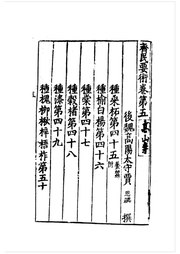 齊民要術卷第五
後魏高陽太守賈思勰撰
種桑柘第四十五 養蠶附
種榆白楊第四十六
種棠第四十七
種穀楮第四十八
種漆第四十九
種槐柳楸梓梧柞第五十